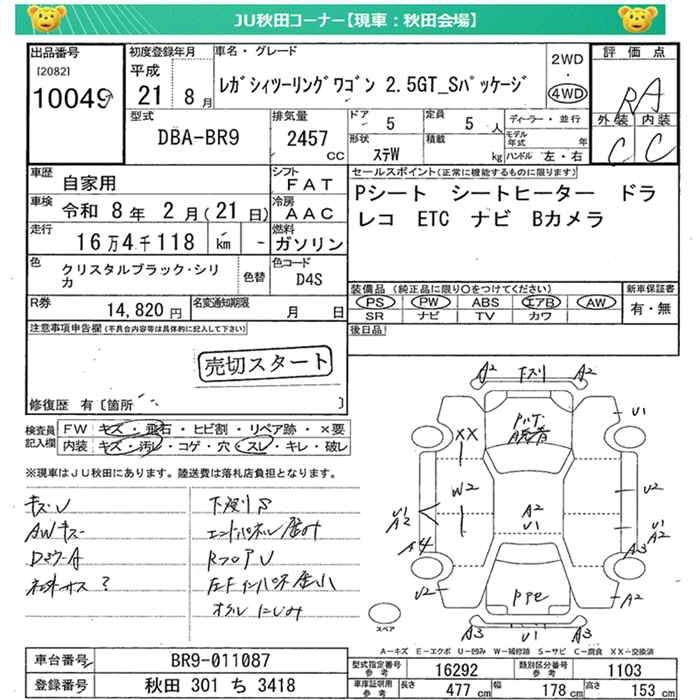 JU秋田コーナー【現車：秋田会場】
出品番号
[2082]
10049
初度登録年月
平成
21 8月
車名・グレード
レガシィツーリングワゴン 2.5GT_Sパッケージ
2WD
・
4WD
評価点
RA
外装 内装
C C
型式
DBA-BR9
排気量
2457
CC
ドア
5
定員
5 人
形状
ステW
積載
kg
ディーラー・並行
モデル年式 年
ハンドル 左・右
車歴
自家用
シフト
FAT
車検
令和 8年 2月(21日)
冷房
AAC
走行
16万4千118 km -
燃料
ガソリン
色
クリスタルブラック・シリカ
色替
色コード
D4S
R券
14,820 円
名変通知期限
月 日
セールスポイント(正常に機能するものに限ります)
Pシート シートヒーター ドラ
レコ ETC ナビ Bカメラ
装備品(純正品に限り○をつけてください)
PS PW ABS エアB AW
SR ナビ TV カワ
新車保証書
有・無
後日品
注意事項申告欄(不具合内容等は具体的に記入して下さい)
売切スタート
修復歴 有〔箇所 〕
検査員記入欄
FW キズ・飛石・ヒビ割・リペア跡・×要
内装 キズ・汚レ・コゲ・穴・スレ・キレ・破レ
※現車はJU秋田にあります。陸送費は落札店負担となります。
キズU
AWキズ
下廻りS
エンドパネル歪み
RフロアU
オイルにじみ
A2 下スリ A2
U1
XX
W2
U2
A2
U1
U1
A2
U1
A2
A4
A3
U2
A2
A3 U1 A3
スペア
A－キズ E－エクボ U－凹み W－補修跡 S－サビ C－腐食 XX－交換済
車台番号
BR9-011087
登録番号
秋田 301 ち 3418
型式指定番号
参考
16292
類別区分番号
参考
1103
車庫証明用
参考
長さ 477 cm 幅 178 cm 高さ 153 cm